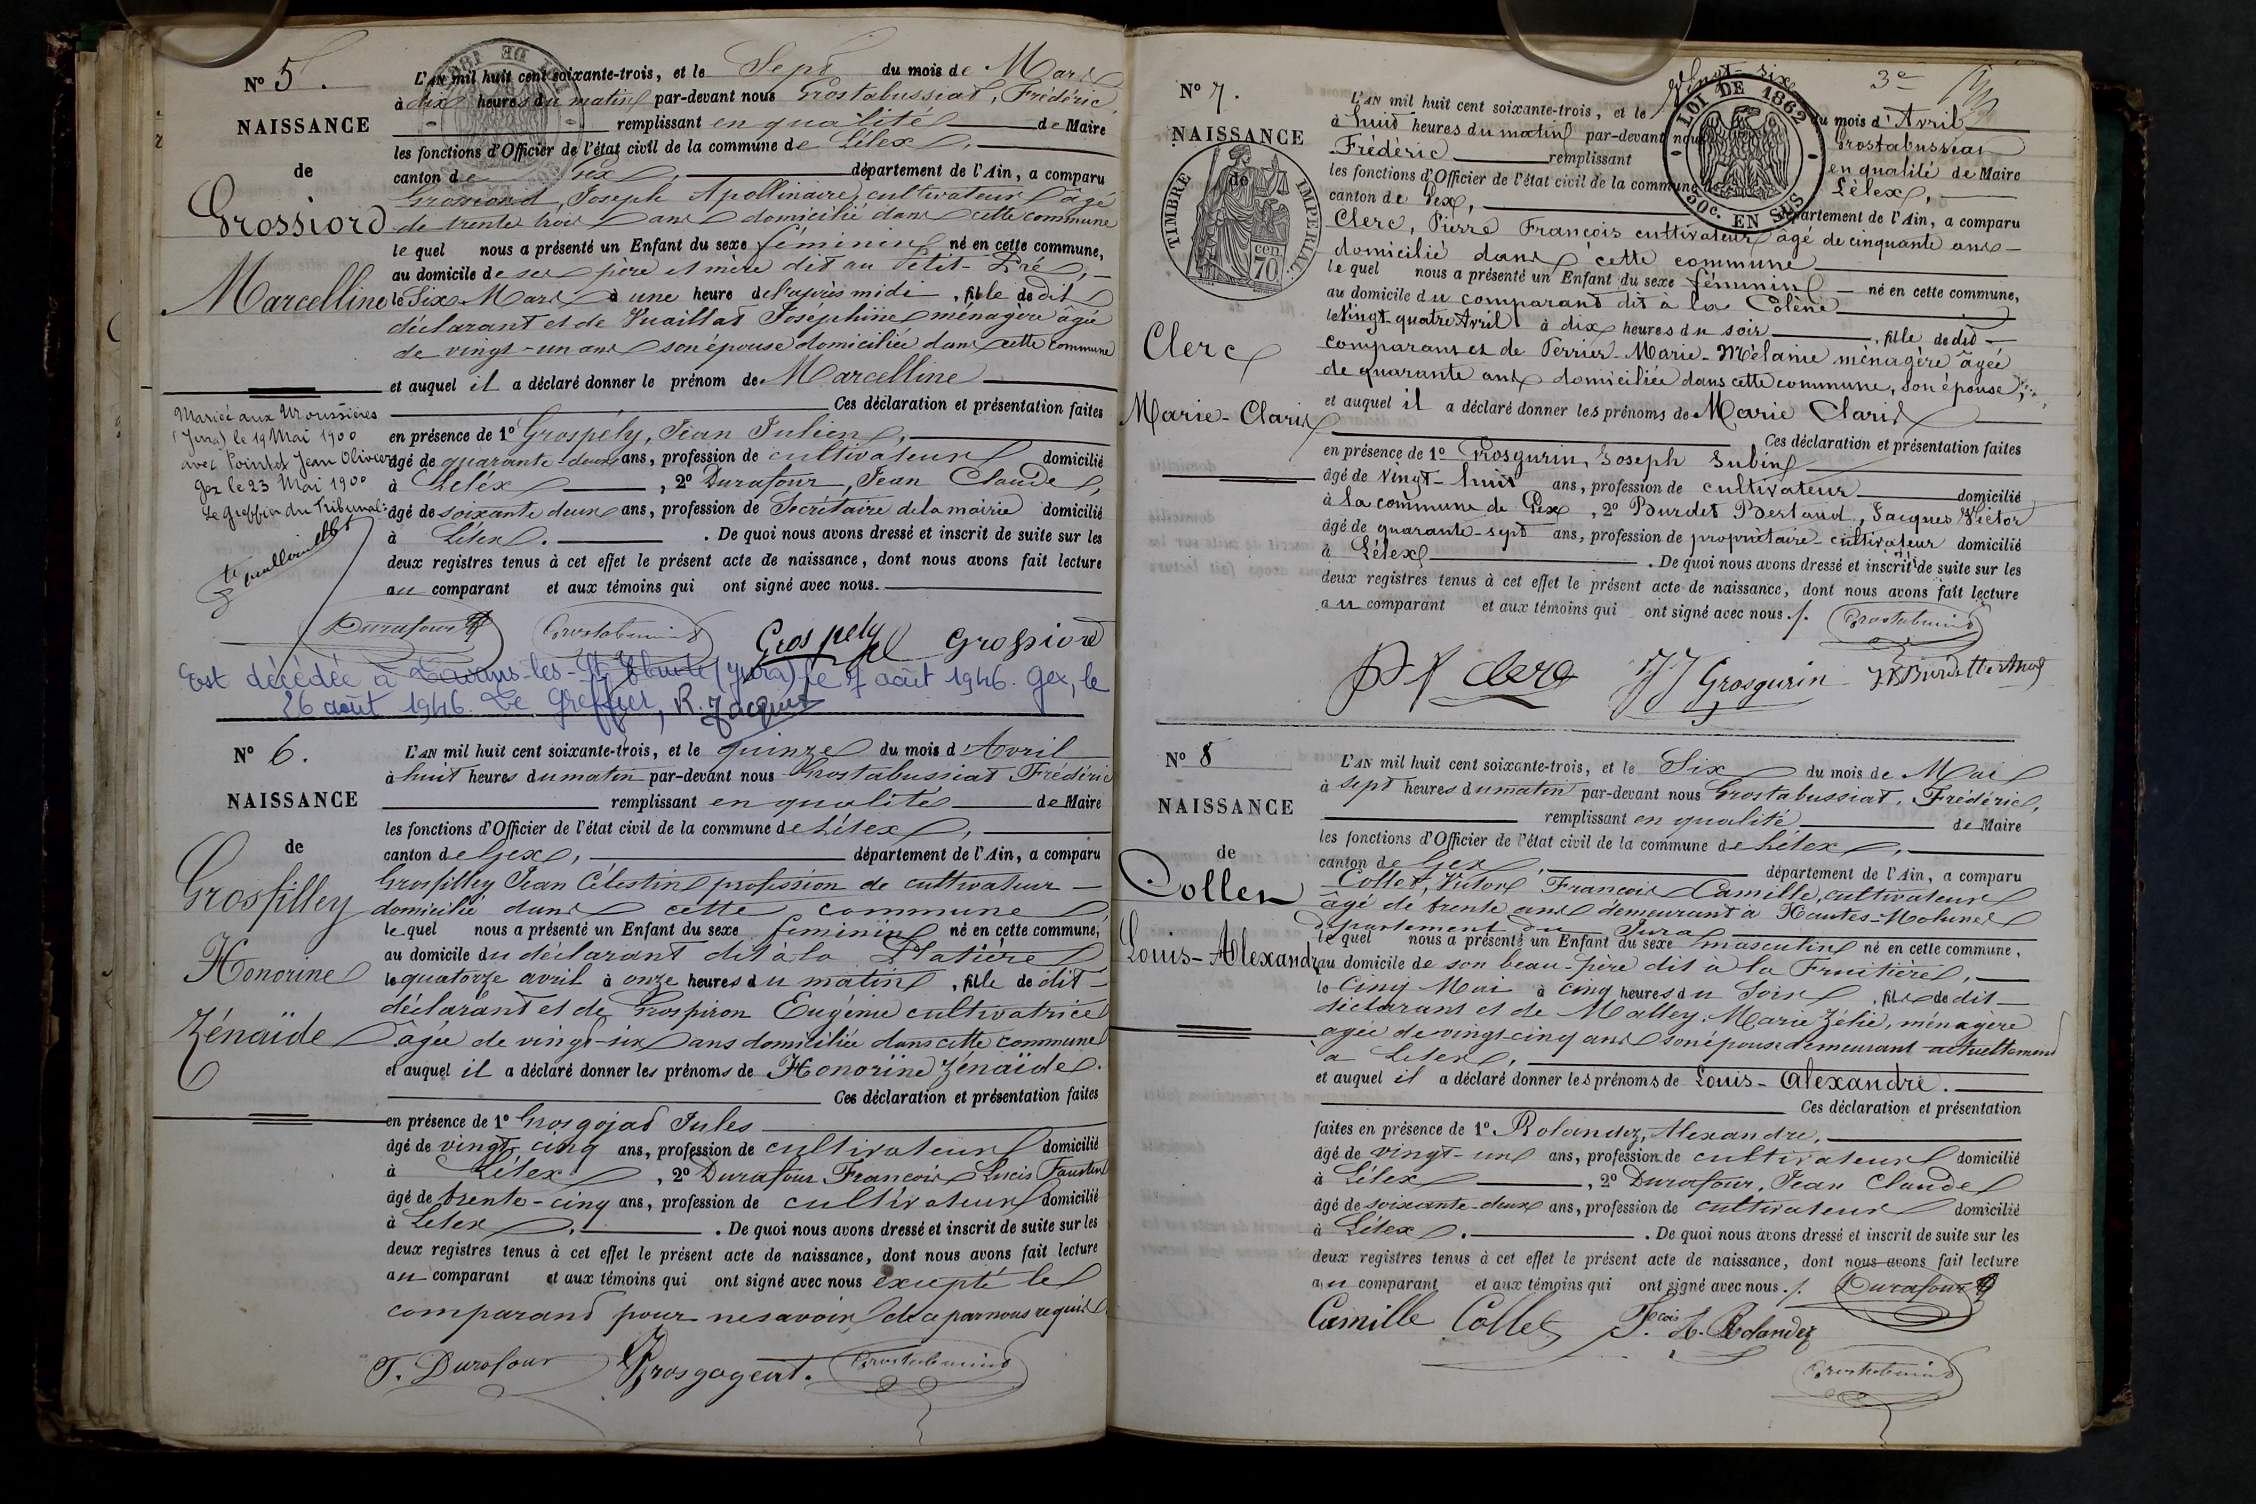 N° 5.
NAISSANCE
de
Grossiord
Marcelline
L'AN mil huit cent soixante-trois, et le Sept du mois de Mars
à dix heures du matin par-devant nous Grostabussiat, Frédéric
remplissant en qualité de Maire
les fonctions d'Officier de l'état civil de la commune de Lélex,
canton de Gex, département de l'Ain, a comparu
Grossiord, Joseph Apollinaire, cultivateur âgé
de trente trois ans domicilié dans cette commune
le quel nous a présenté un Enfant du sexe féminin né en cette commune,
au domicile de ses père et mère dit au Petit-Pré,
le Six Mars à une heure de l'après midi, fille de dit
déclarant et de Vuaillat Joséphine ménagère âgée
de vingt-un ans son épouse domiciliée dans cette commune
et auquel il a déclaré donner le prénom de Marcelline
Ces déclaration et présentation faites
en présence de 1° Grospély, Jean Julien,
âgé de quarante-deux ans, profession de cultivateur domicilié
à Lélex, 2° Durafour, Jean Claude,
âgé de soixante deux ans, profession de Secrétaire de la mairie domicilié
à Lélex. De quoi nous avons dressé et inscrit de suite sur les
deux registres tenus à cet effet le présent acte de naissance, dont nous avons fait lecture
au comparant et aux témoins qui ont signé avec nous.
Mariée aux Moussières
(Jura) le 19 Mai 1900
avec Pointet Jean Olivier
Gex le 23 Mai 1900
Le Greffier du Tribunal:
Durafour Grostabussiat Grospely Grossiord
Est décédée à Lavans-les-St Claude (Jura) le 7 août 1946. Gex, le
26 août 1946. Le Greffier, R. Jacquet
N° 6.
NAISSANCE
de
Grosfilley
Honorine
Zénaïde
L'AN mil huit cent soixante-trois, et le quinze du mois d'Avril
à huit heures du matin par-devant nous Grostabussiat, Frédéric
remplissant en qualité de Maire
les fonctions d'Officier de l'état civil de la commune de Lélex,
canton de Gex, département de l'Ain, a comparu
Grosfilley Jean Célestin profession de cultivateur
domicilié dans cette commune
le quel nous a présenté un Enfant du sexe féminin né en cette commune,
au domicile du déclarant dit à la Platière
le quatorze avril à onze heures du matin, fille de dit
déclarant et de Grospiron Eugénie cultivatrice
âgée de vingt-six ans domiciliée dans cette commune
et auquel il a déclaré donner les prénoms de Honorine Zénaïde.
Ces déclaration et présentation faites
en présence de 1° Grosgojat Jules
âgé de vingt cinq ans, profession de cultivateur domicilié
à Lélex, 2° Durafour François Lucis Faustin
âgé de trente-cinq ans, profession de cultivateur domicilié
à Lelex. De quoi nous avons dressé et inscrit de suite sur les
deux registres tenus à cet effet le présent acte de naissance, dont nous avons fait lecture
au comparant et aux témoins qui ont signé avec nous excepté le
comparant pour ne savoir de ce par nous requis
F. Durafour Grosgogeat. Grostabussiat
3e
N° 7.
NAISSANCE
de
TIMBRE IMPERIAL
cen 70
LOI DE 1862
50c. EN SUS
Clerc
Marie-Claris
L'AN mil huit cent soixante-trois, et le Vingt-six du mois d'Avril
à huit heures du matin par-devant nous Grostabussiat
Frédéric remplissant en qualité de Maire
les fonctions d'Officier de l'état civil de la commune de Lélex,
canton de Gex, département de l'Ain, a comparu
Clerc, Pierre François cultivateur âgé de cinquante ans
domicilié dans cette commune
le quel nous a présenté un Enfant du sexe féminin né en cette commune,
au domicile du comparant dit à la Colène
le Vingt-quatre Avril à dix heures du soir, fille de dit
comparant et de Perrier-Marie-Mélanie ménagère âgée
de quarante ans domiciliée dans cette commune, son épouse,
et auquel il a déclaré donner les prénoms de Marie Claris
Ces déclaration et présentation faites
en présence de 1° Grosgurin, Joseph Jubin
âgé de Vingt-huit ans, profession de cultivateur domicilié
à la commune de Gex, 2° Burdet Bertaud, Jacques Victor
âgé de quarante-sept ans, profession de propriétaire-cultivateur domicilié
à Lélex. De quoi nous avons dressé et inscrit de suite sur les
deux registres tenus à cet effet le présent acte de naissance, dont nous avons fait lecture
au comparant et aux témoins qui ont signé avec nous./. Grostabussiat
Clerc JJ Grosgurin
N° 8
NAISSANCE
de
Collet
Louis-Alexandre
L'AN mil huit cent soixante-trois, et le Six du mois de Mai
à sept heures du matin par-devant nous Grostabussiat, Frédéric,
remplissant en qualité de Maire
les fonctions d'Officier de l'état civil de la commune de Lélex,
canton de Gex, département de l'Ain, a comparu
Collet, Victor François Camille, cultivateur
âgé de trente ans demeurant à Hautes-Molunes
département du Jura
le quel nous a présenté un Enfant du sexe masculin né en cette commune,
au domicile de son beau-père dit à la Fruitière,
le Cinq Mai à cinq heures du Soir, fils de dit
déclarant et de Malley, Marie Zélie, ménagère
agée de vingt-cinq ans son épouse demeurant actuellement
à Lelex,
et auquel il a déclaré donner les prénoms de Louis-Alexandre.
Ces déclaration et présentation
faites en présence de 1° Rolandez, Alexandre,
âgé de vingt-un ans, profession de cultivateur domicilié
à Lélex, 2° Durafour, Jean Claude
âgé de soixante-deux ans, profession de cultivateur domicilié
à Lélex. De quoi nous avons dressé et inscrit de suite sur les
deux registres tenus à cet effet le présent acte de naissance, dont nous avons fait lecture
au comparant et aux témoins qui ont signé avec nous./. Durafour
Camille Collet A. Rolandez
Grostabussiat